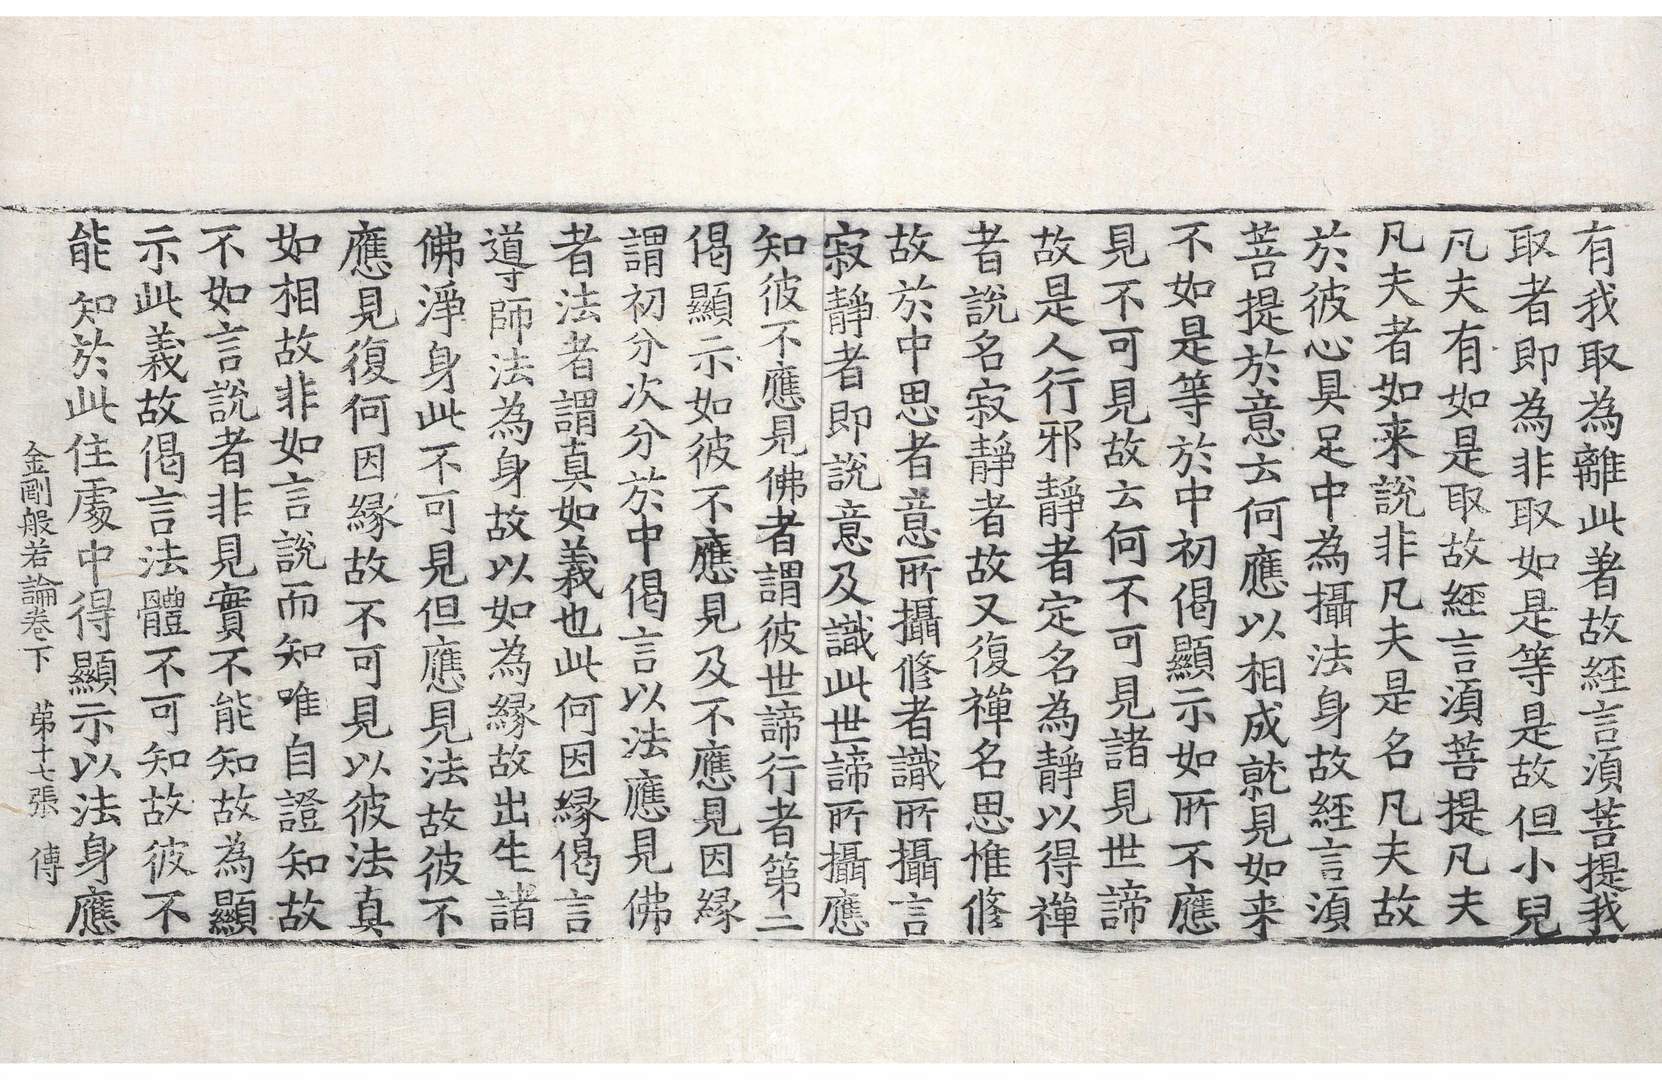 有我取為離此著故経言湏菩提我
取者即為非取如是等是故但小兒
凡夫有如是取故経言湏菩提凡夫
凡夫者如来說非凡夫是名凡夫故
於彼心具足中為攝法身故経言湏
菩提於意云何應以相成就見如来
不如是等於中初偈顯示如所不應
見不可見故云何不可見諸見世諦
故是人行邪靜者定名為靜以得禪
者說名寂靜者故又復禪名思惟修
故於中思者意所攝修者識所攝言
寂靜者即說意及識此世諦所攝應
知彼不應見佛者謂彼世諦行者第二
偈顯示如彼不應見及不應見因緣
謂初分次分於中偈言以法應見佛
者法者謂真如義也此何因緣偈言
導師法為身故以如為緣故出生諸
佛淨身此不可見但應見法故彼不
應見復何因緣故不可見以彼法真
如相故非如言說而知唯自證知故
不如言說者非見實不能知故為顯
示此義故偈言法體不可知故彼不
能知於此住處中得顯示以法身應
金剛般若論卷下 苐十七張 傳